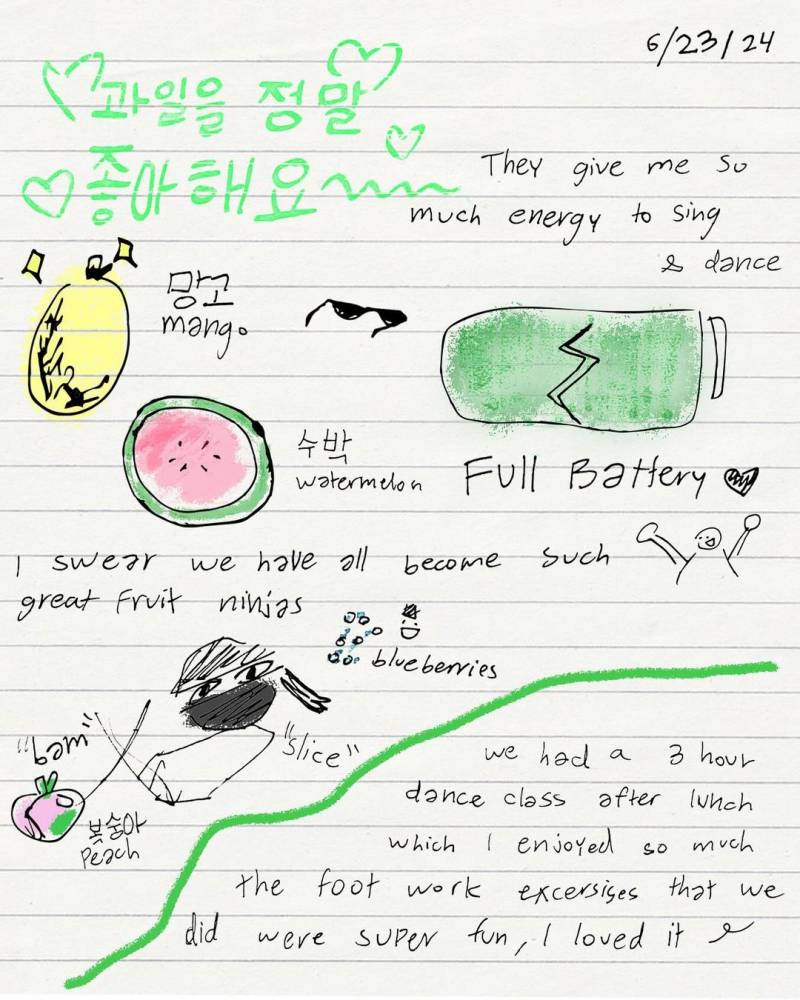 6/23/24
과일을 정말
좋아해요
They give me so
much energy to sing
& dance
망고
mango
수박
watermelon
Full Battery
I swear we have all become such
great fruit ninjas
blueberries
"bam"
"slice"
복숭아
peach
we had a 3 hour
dance class after lunch
which I enjoyed so much
the foot work excersises that we
did were super fun, I loved it